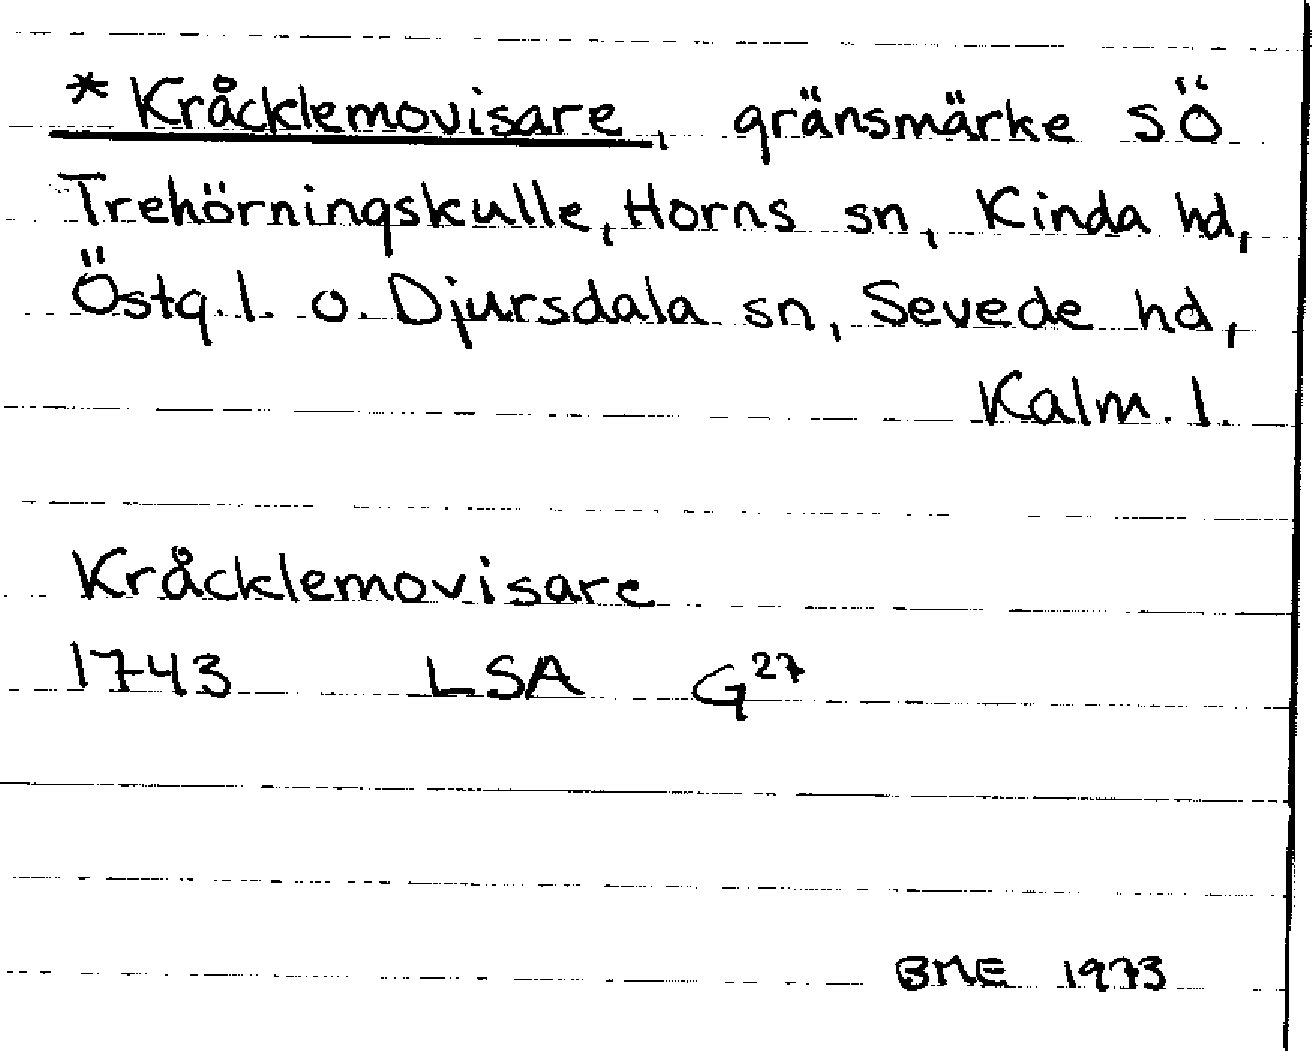 * Kråcklemovisare, gränsmärke SÖ
Trehörningskulle, Horns sn, Kinda hd,
Östg.l. o. Djursdala sn, Sevede hd,
Kalm.l.
Kråcklemovisare
1743 LSA G27
BME 1973